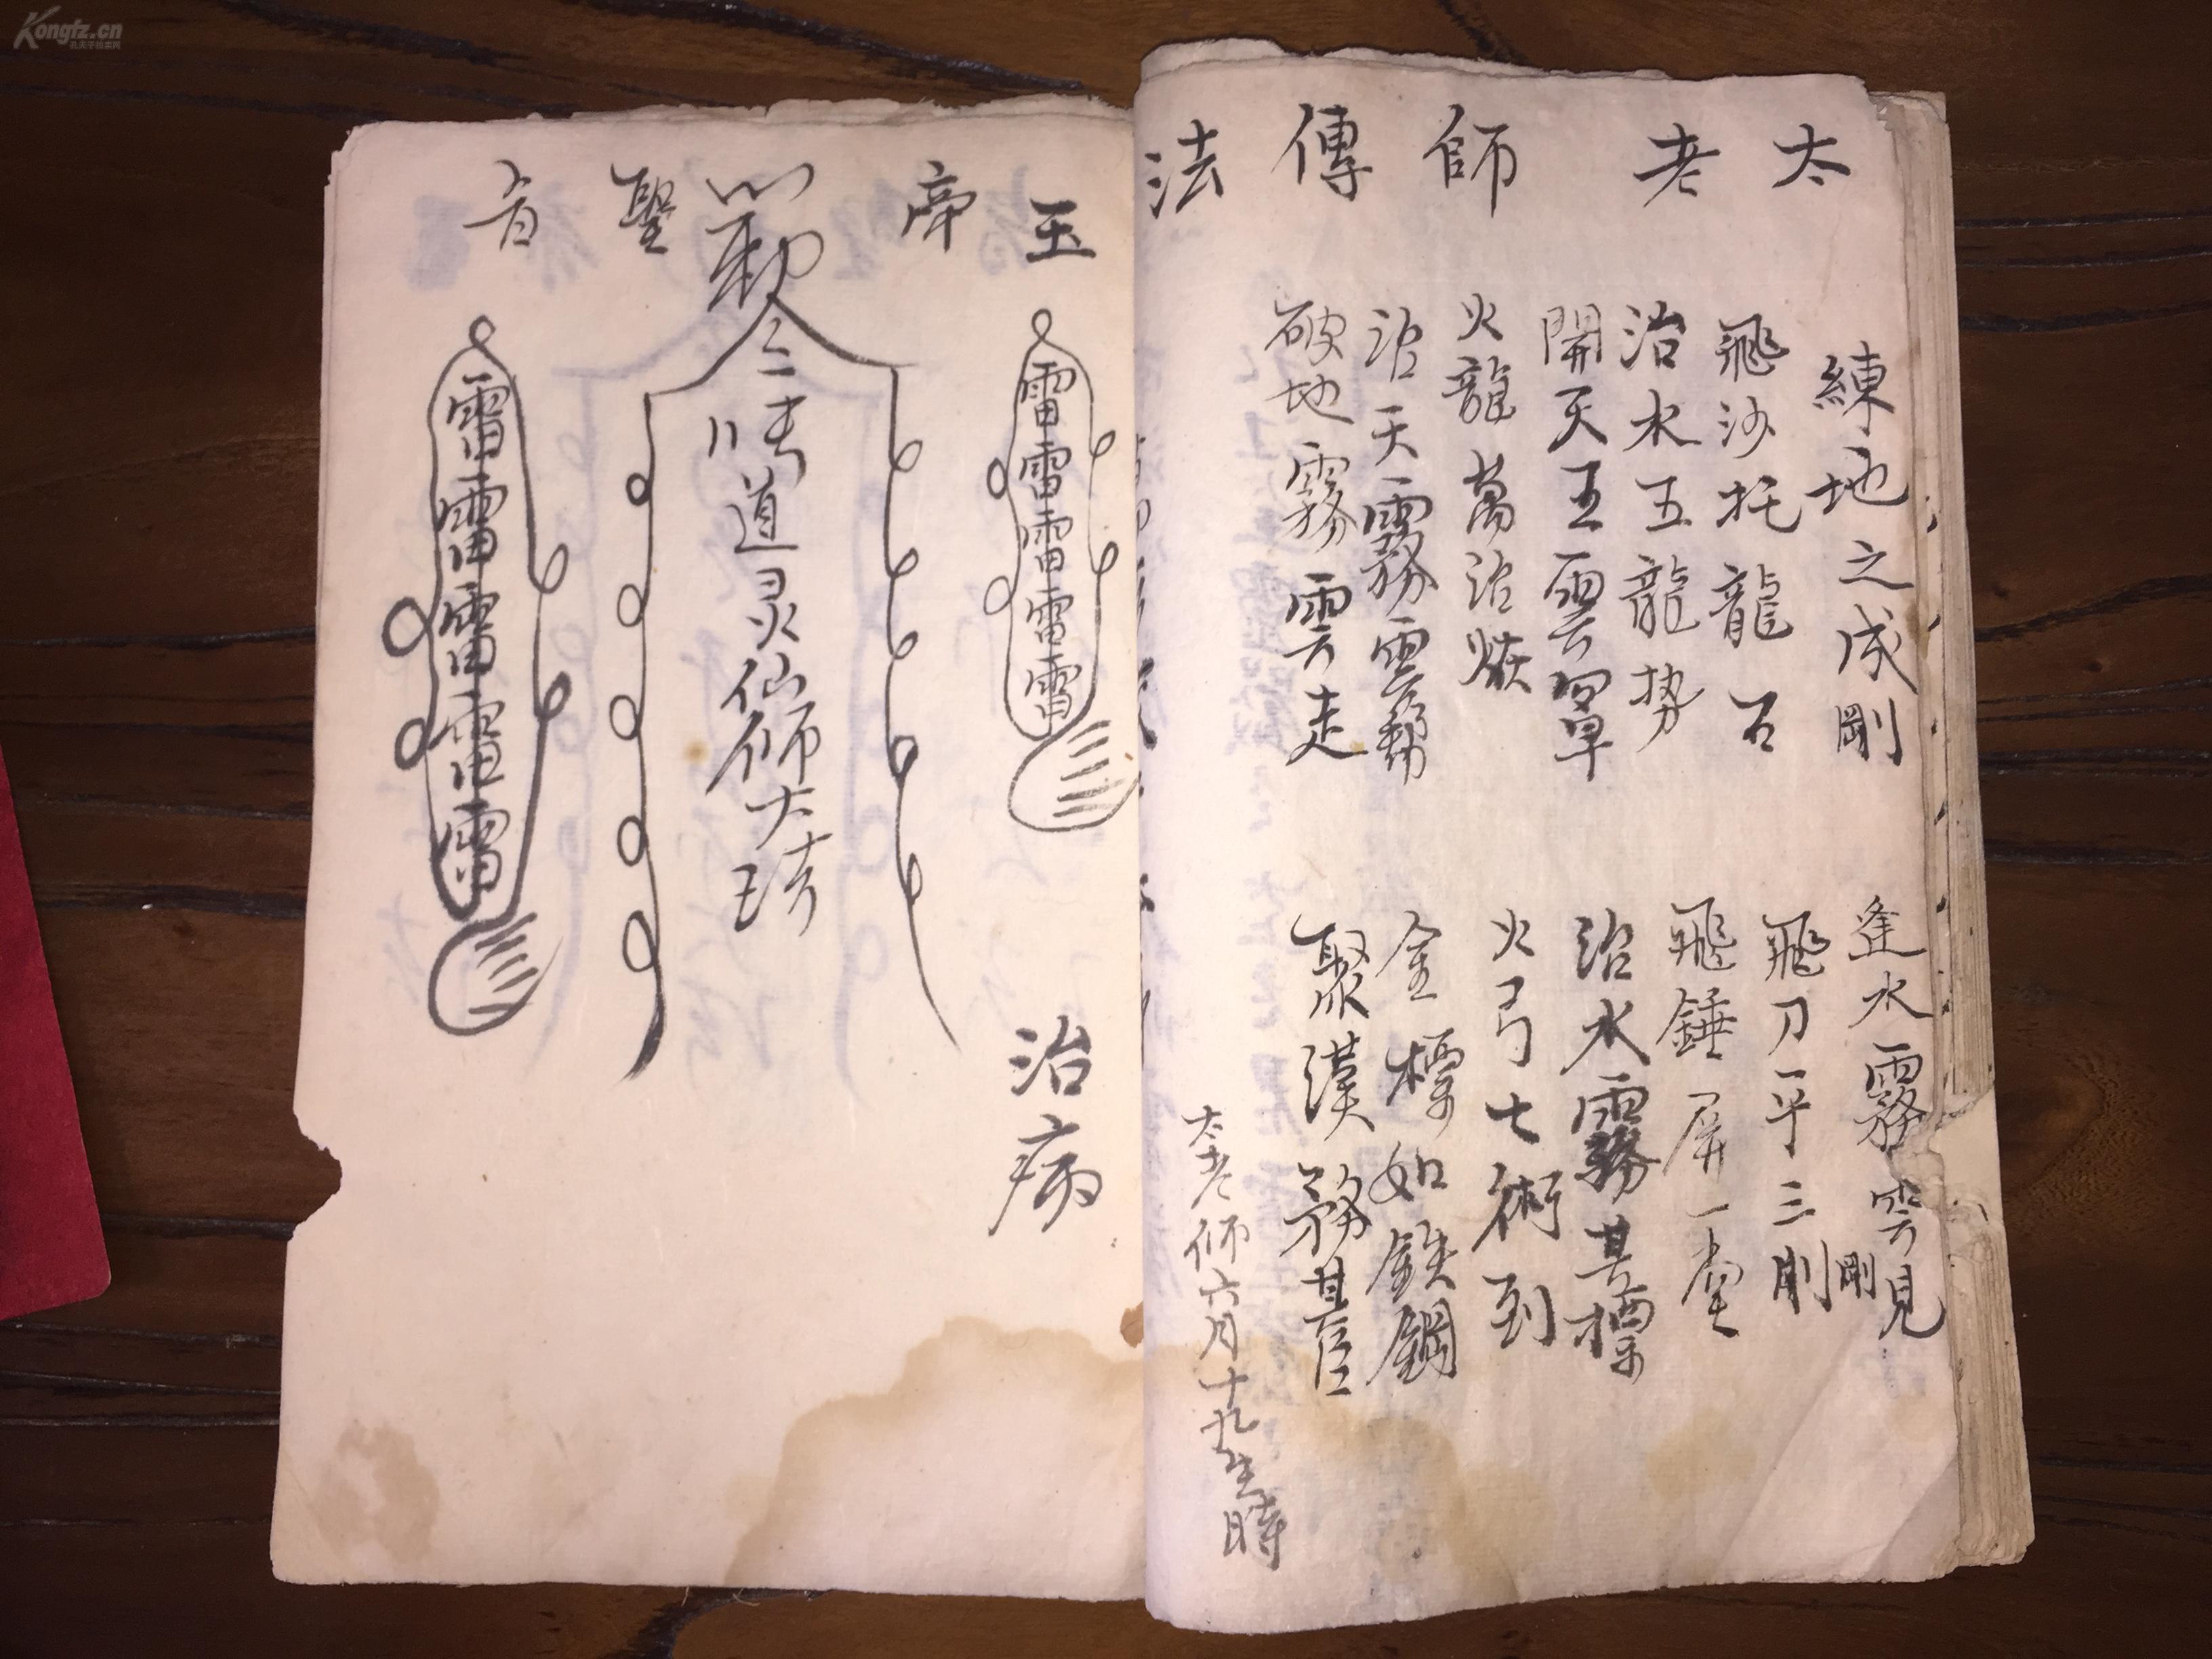 太老師傳法
練地之成剛
逢水霧雲見
剛
飛沙托龍石
飛刀平三削
治水五龍势
飛錘屏一堂
開天王雲罩
治水霧其標
火龍萬治
火弓七術到
治天霧雲
金標如鉄鋼
破地霧雲走
聚漢務其
太老师六月十九生時
玉帝聖旨
雷雷雷雷雷
敕令
道灵仙师大
雷雷雷雷雷
治病
Kongfz.cn